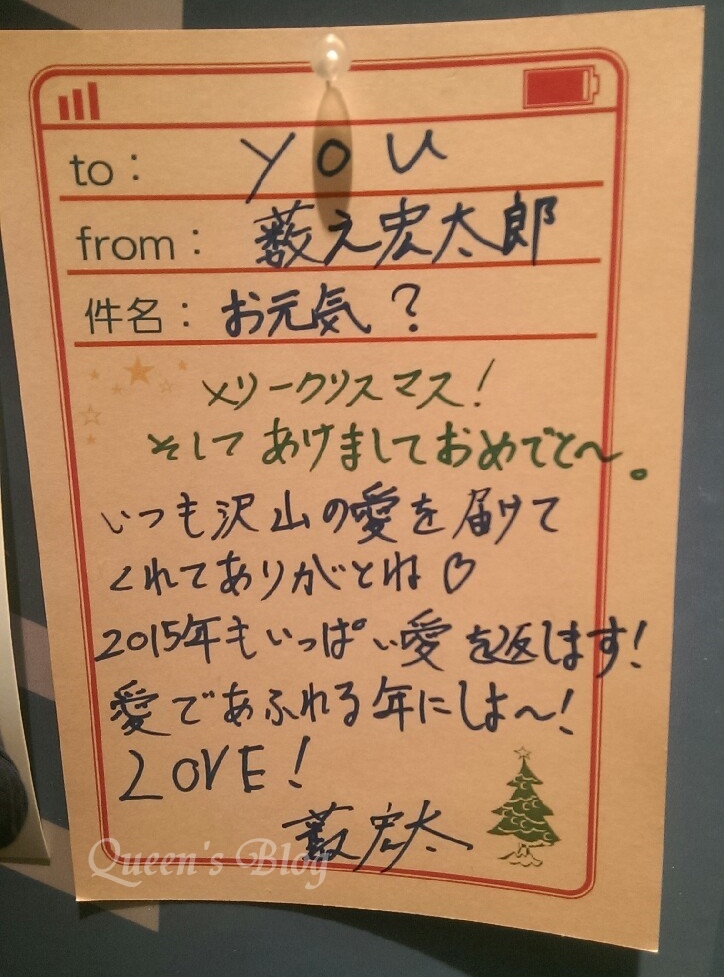 to: you
from: 薮え宏太郎
件名: お元気?
メリークリスマス!
そしてあけましておめでと〜。
いつも沢山の愛を届けて
くれてありがとね♡
2015年もいっぱい愛を返します!
愛であふれる年にしよ〜!
LOVE!
薮宏太
Queen's Blog